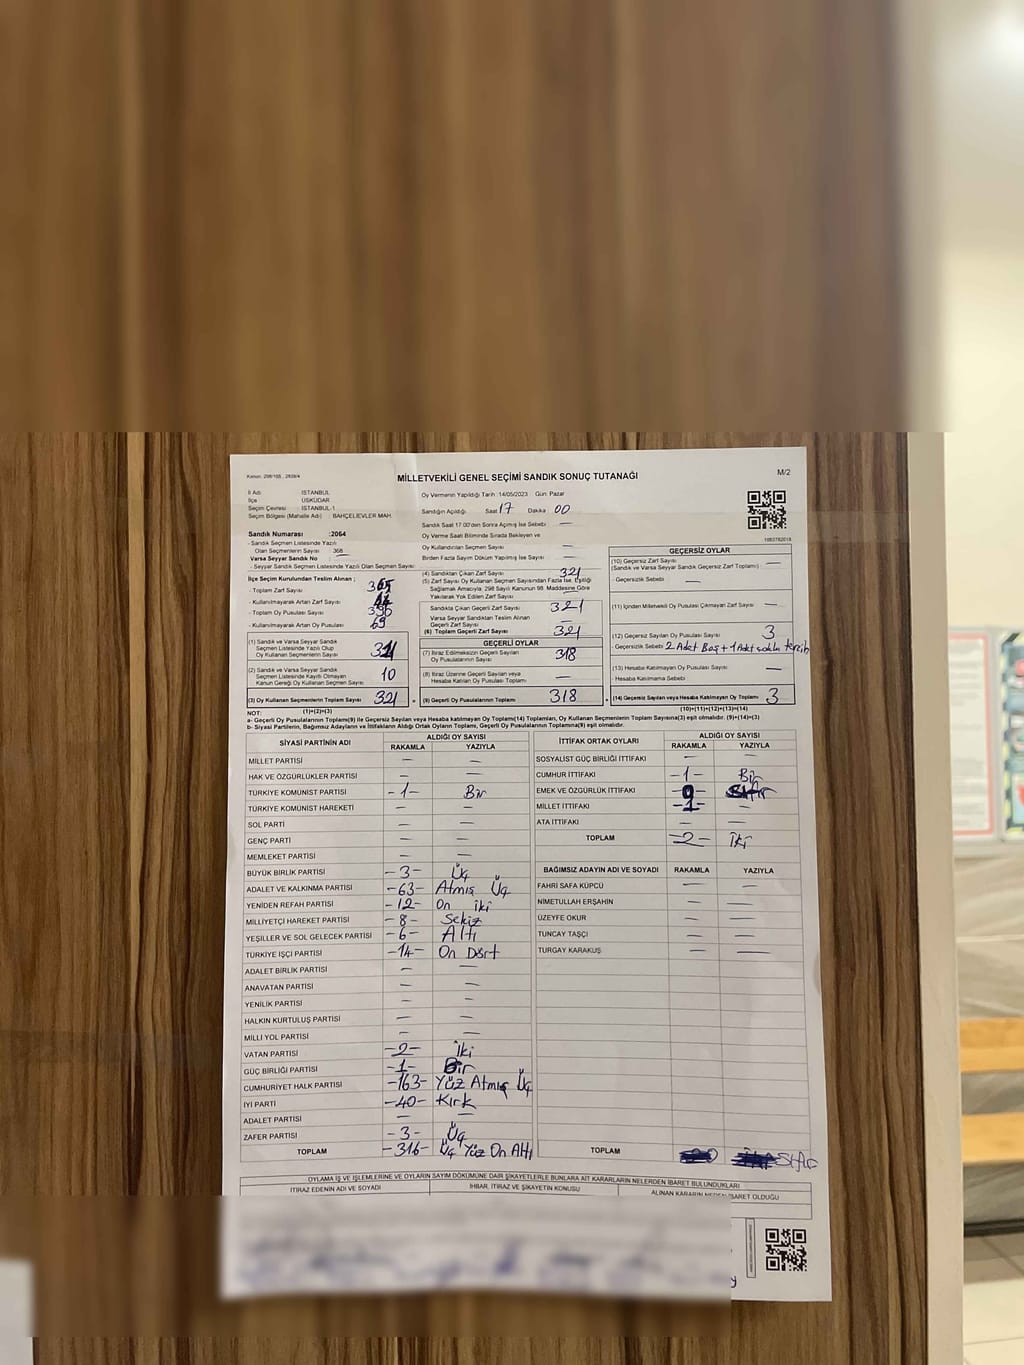 Kanun: 298/105 , 2839/4
MİLLETVEKİLİ GENEL SEÇİMİ SANDIK SONUÇ TUTANAĞI
M/2
İl Adı : İSTANBUL
İlçe : ÜSKÜDAR
Seçim Çevresi : İSTANBUL-1
Seçim Bölgesi (Mahalle Adı) : BAHÇELİEVLER MAH.
Sandık Numarası :2064
- Sandık Seçmen Listesinde Yazılı
Olan Seçmenlerin Sayısı : 368
Varsa Seyyar Sandık No : —
- Seyyar Sandık Seçmen Listesinde Yazılı Olan Seçmen Sayısı:
İlçe Seçim Kurulundan Teslim Alınan ;
- Toplam Zarf Sayısı :
- Kullanılmayarak Artan Zarf Sayısı :
- Toplam Oy Pusulası Sayısı :
- Kullanılmayarak Artan Oy Pusulası : 69
(1) Sandık ve Varsa Seyyar Sandık
Seçmen Listesinde Yazılı Olup
Oy Kullanan Seçmenlerin Sayısı
(2) Sandık ve Varsa Seyyar Sandık
Seçmen Listesinde Kayıtlı Olmayan
Kanun Gereği Oy Kullanan Seçmen Sayısı 10
(3) Oy Kullanan Seçmenlerin Toplam Sayısı 321
(1)+(2)=(3)
Oy Vermenin Yapıldığı Tarih :14/05/2023 Gün: Pazar
Sandığın Açıldığı Saat 17 Dakika 00
Sandık Saat 17.00'den Sonra Açılmış İse Sebebi : —
Oy Verme Saati Bitiminde Sırada Bekleyen ve
Oy Kullandırılan Seçmen Sayısı : —
Birden Fazla Sayım Döküm Yapılmış İse Sayısı : —
(4) Sandıktan Çıkan Zarf Sayısı : 321
(5) Zarf Sayısı Oy Kullanan Seçmen Sayısından Fazla İse, Eşitliği
Sağlamak Amacıyla; 298 Sayılı Kanunun 98. Maddesine Göre
Yakılarak Yok Edilen Zarf Sayısı : —
Sandıkta Çıkan Geçerli Zarf Sayısı : 321
Varsa Seyyar Sandıktan Teslim Alınan
Geçerli Zarf Sayısı : —
(6) Toplam Geçerli Zarf Sayısı : 321
GEÇERLİ OYLAR
(7) İtiraz Edilmeksizin Geçerli Sayılan
Oy Pusulalarının Sayısı : 318
(8) İtiraz Üzerine Geçerli Sayılan veya
Hesaba Katılan Oy Pusulası Toplamı : —
(9) Geçerli Oy Pusulalarının Toplamı : 318
GEÇERSİZ OYLAR
(10) Geçersiz Zarf Sayısı
(Sandık ve Varsa Seyyar Sandık Geçersiz Zarf Toplamı) : —
- Geçersizlik Sebebi : —
(11) İçinden Milletvekili Oy Pusulası Çıkmayan Zarf Sayısı : —
(12) Geçersiz Sayılan Oy Pusulası Sayısı : 3
- Geçersizlik Sebebi: 2 Adet Boş + 1 Adet
(13) Hesaba Katılmayan Oy Pusulası Sayısı : —
- Hesaba Katılmama Sebebi :
(14) Geçersiz Sayılan veya Hesaba Katılmayan Oy Toplamı : 3
(10)+(11)+(12)+(13)=(14)
NOT:
a- Geçerli Oy Pusulalarının Toplamı(9) ile Geçersiz Sayılan veya Hesaba katılmayan Oy Toplamı(14) Toplamları, Oy Kullanan Seçmenlerin Toplam Sayısına(3) eşit olmalıdır. (9)+(14)=(3)
b- Siyasi Partilerin, Bağımsız Adayların ve İttifakların Aldığı Ortak Oyların Toplamı, Geçerli Oy Pusulalarının Toplamına(9) eşit olmalıdır.
SİYASİ PARTİNİN ADI ALDIĞI OY SAYISI
RAKAMLA YAZIYLA
MİLLET PARTİSİ — —
HAK VE ÖZGÜRLÜKLER PARTİSİ — —
TÜRKİYE KOMÜNİST PARTİSİ -1- Bir
TÜRKİYE KOMÜNİST HAREKETİ — —
SOL PARTİ — —
GENÇ PARTİ — —
MEMLEKET PARTİSİ — —
BÜYÜK BİRLİK PARTİSİ -3- Üç
ADALET VE KALKINMA PARTİSİ -63- Atmış Üç
YENİDEN REFAH PARTİSİ -12- On iki
MİLLİYETÇİ HAREKET PARTİSİ -8- Sekiz
YEŞİLLER VE SOL GELECEK PARTİSİ -6- Altı
TÜRKİYE İŞÇİ PARTİSİ -14- On Dört
ADALET BİRLİK PARTİSİ — —
ANAVATAN PARTİSİ — —
YENİLİK PARTİSİ — —
HALKIN KURTULUŞ PARTİSİ — —
MİLLİ YOL PARTİSİ — —
VATAN PARTİSİ -2- İki
GÜÇ BİRLİĞİ PARTİSİ -1- Bir
CUMHURİYET HALK PARTİSİ -163- Yüz Atmış Üç
İYİ PARTİ -40- Kırk
ADALET PARTİSİ — —
ZAFER PARTİSİ -3- Üç
TOPLAM -316- Üç Yüz On Altı
İTTİFAK ORTAK OYLARI ALDIĞI OY SAYISI
RAKAMLA YAZIYLA
SOSYALİST GÜÇ BİRLİĞİ İTTİFAKI — —
CUMHUR İTTİFAKI -1- Bir
EMEK VE ÖZGÜRLÜK İTTİFAKI
MİLLET İTTİFAKI -1- —
ATA İTTİFAKI — —
TOPLAM -2- İki
BAĞIMSIZ ADAYIN ADI VE SOYADI RAKAMLA YAZIYLA
FAHRİ SAFA KÜPCÜ — —
NİMETULLAH ERŞAHİN — —
ÜZEYFE OKUR — —
TUNCAY TAŞÇI — —
TURGAY KARAKUŞ — —
TOPLAM Sıfır
OYLAMA İŞ VE İŞLEMLERİNE VE OYLARIN SAYIM DÖKÜMÜNE DAİR ŞİKAYETLERLE BUNLARA AİT KARARLARIN NELERDEN İBARET BULUNDUKLARI
İTİRAZ EDENİN ADI VE SOYADI İHBAR, İTİRAZ VE ŞİKAYETİN KONUSU ALINAN KARARIN NEDEN İBARET OLDUĞU